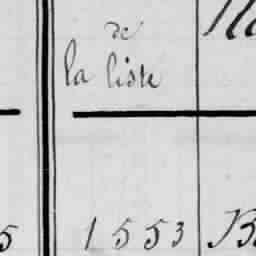 de
la liste
5 1553 B